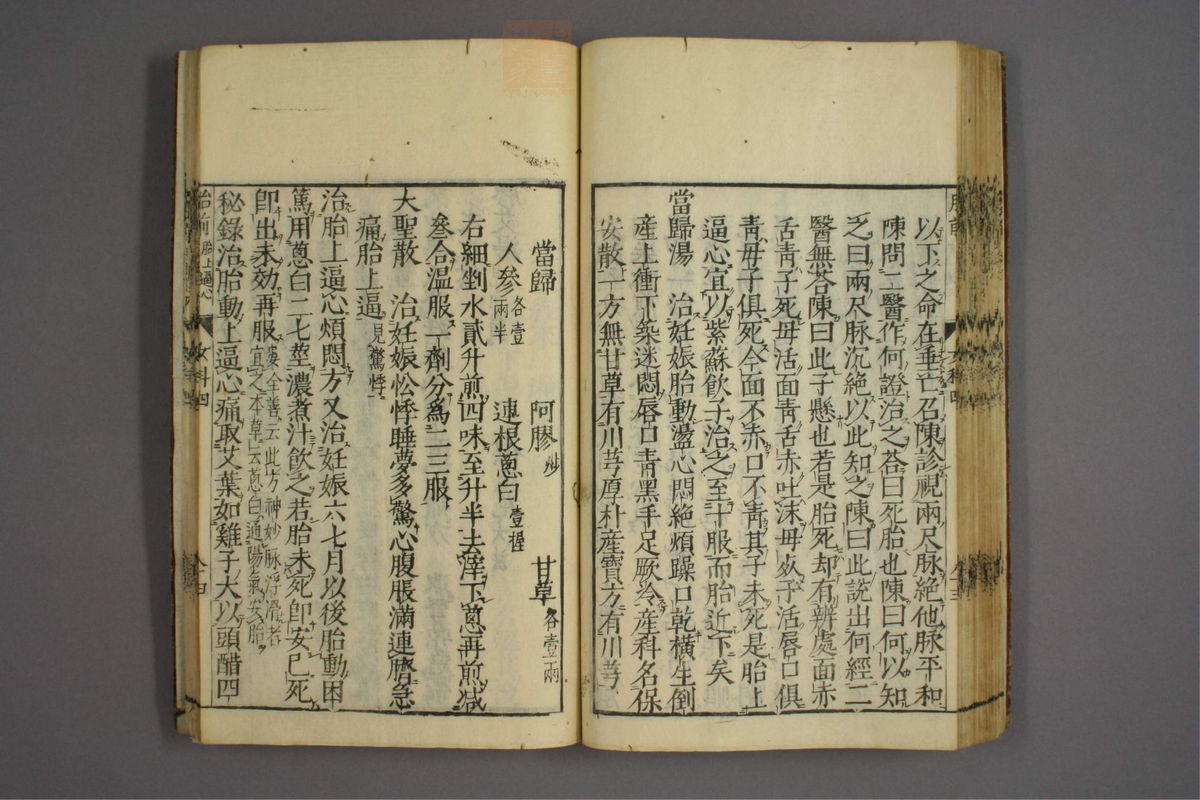 以下之命在垂亡召陳診視兩尺脉絶他脉平和
陳問二醫作何證治之荅曰死胎也陳曰何以知
之曰兩尺脉沉絶以此知之陳曰此說出何經二
醫無荅陳曰此子懸也若是胎死却有辨處面赤
舌青子死母活面青舌赤吐沫母死子活唇口俱
青母子俱死今面不赤口不青其子未死是胎上
逼心宜以紫蘇飲子治之至十服而胎近下矣
當歸湯 治妊娠胎動盪心悶絶煩躁口乾橫生倒
産上衝下築迷悶唇口青黑手足厥冷産科名保
安散一方無甘草有川芎厚朴産寶方有川芎
當歸 阿膠炒 甘草各壹兩
人參各壹兩半 連根蔥白壹握
右細剉水貳升煎四味至升半去滓下蔥再煎减
叄合温服一劑分爲二三服
大聖散 治妊娠忪悸睡夢多驚心腹脹滿連臍急
痛胎上逼見驚悸
治胎上逼心煩悶方又治妊娠六七月以後胎動困
篤用蔥白二七莖濃煮汁飲之若胎未死卽安已死
卽出未効再服婁全善云此方神妙脉浮滑者宜之本草云蔥白通陽氣安胎
秘錄治胎動上逼心痛取艾葉如雞子大以頭醋四
胎前
女科四
胎前 胎上逼心
女科四